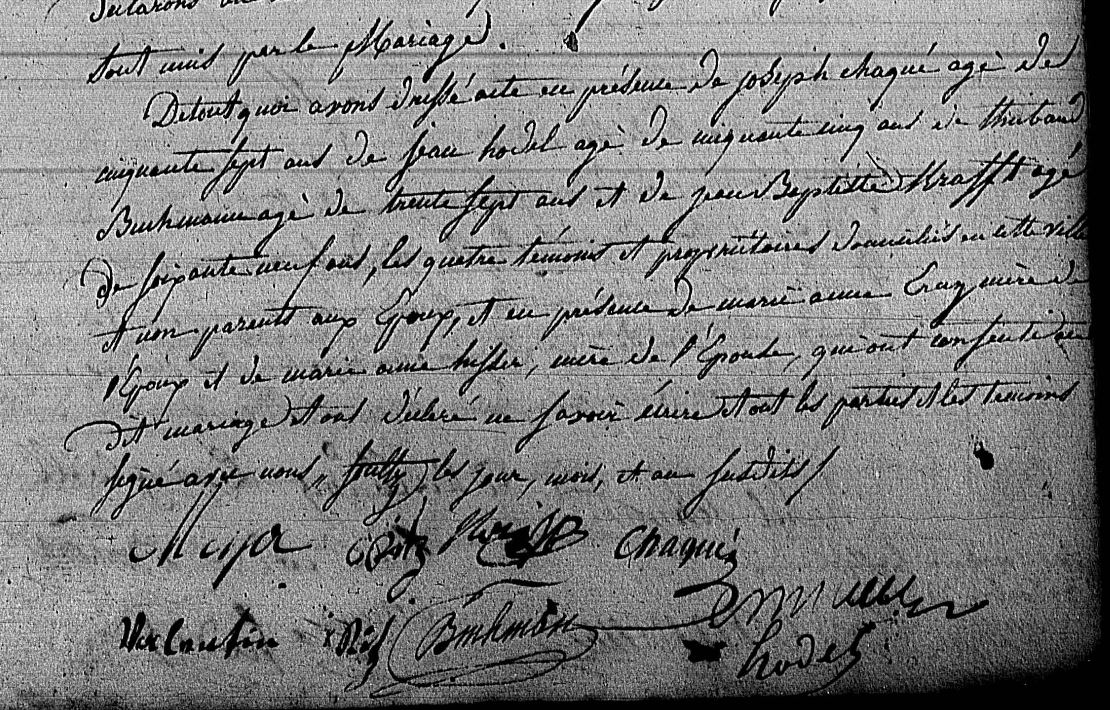 Déclarons
sont unis par le Mariage.
De tout quoi avons dressé acte en présence de joseph chaqué agé de
cinquante sept ans de jean hodel agé de cinquante cinq ans de thiebaud
Buchmann agé de trente sept ans et de jean Baptiste Krafft agé
de soixante neuf ans, les quatre témoins et propriétaires domiciliés en cette ville
et non parents aux Epoux, et en présence de marie anne mère de
l'Epoux et de marie anne mère de l'Epouse, qui ont consenti au
dit mariage et ont déclaré ne savoir écrire et ont les parties et les temoins
signé avec nous, soultz les jour, mois, et an susdits/
Meyer Chaqué
Valentin Buchmann
hodel